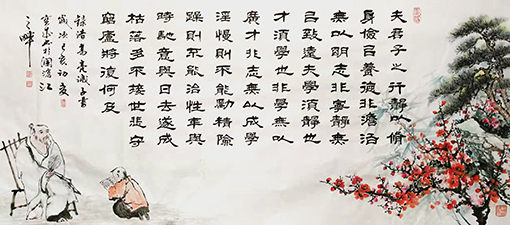 夫君子之行靜以脩
身儉以養德非澹泊
無以明志非寧靜無
以致遠夫學須靜也
才須學也非學無以
廣才非志無以成學
淫慢則不能勵精險
躁則不能治性年與
時馳意與日去遂成
枯落多不接世悲守
窮廬將復何及
錄諸葛亮誡子書
歲次己亥初夏
於瀾滄江
之畔